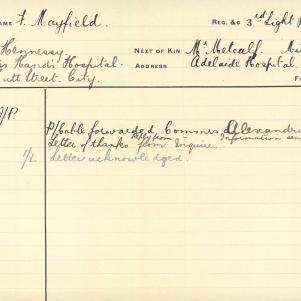 NAME F. Mayfield. REG. &C 3rd Light
Hennessy NEXT OF KIN Mr Metcalf.
Hosp. Hospital. ADDRESS Adelaide Hospital.
Street. City.
P/Cable forwarded Commrs. Alexandria
Letter of thanks from Enquirer. Information
Letter acknowledged.